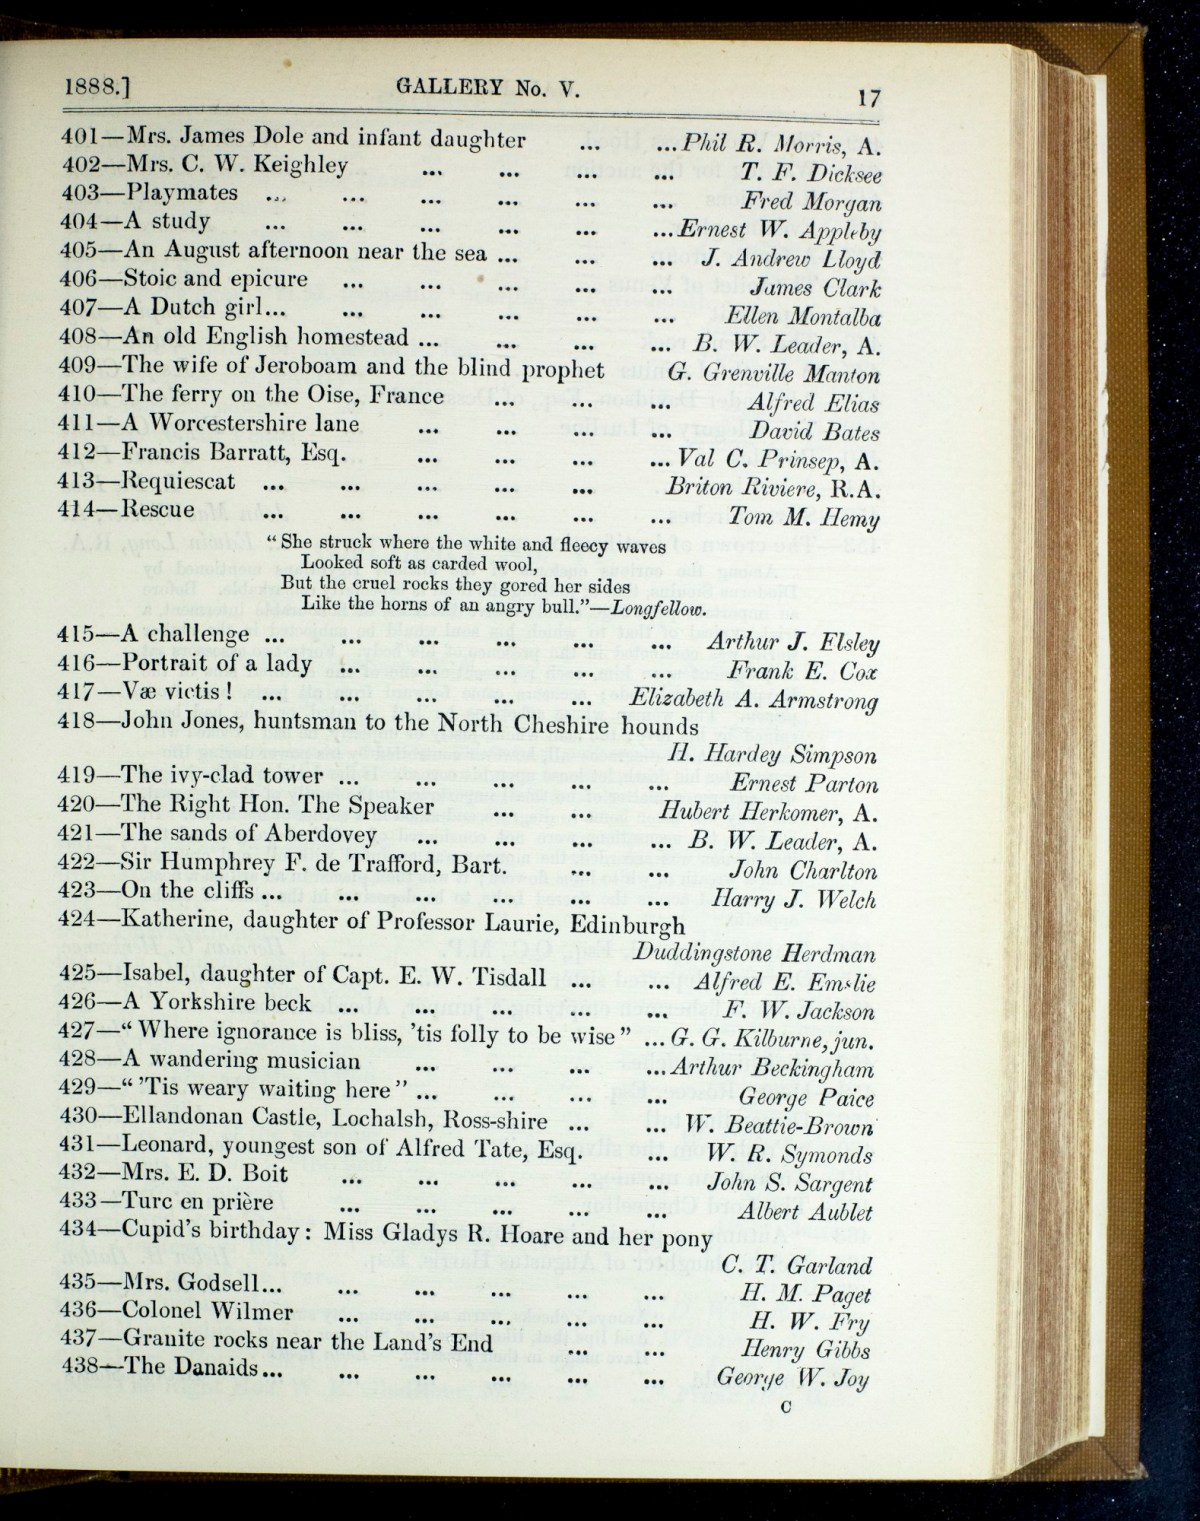 1888.] GALLERY No. V. 17
401—Mrs. James Dole and infant daughter ... ...Phil R. Morris, A.
402—Mrs. C. W. Keighley ... ... ... ... T. F. Dicksee
403—Playmates ... ... ... ... ... ... Fred Morgan
404—A study ... ... ... ... ... ...Ernest W. Appleby
405—An August afternoon near the sea ... ... ... J. Andrew Lloyd
406—Stoic and epicure ... ... ... ... ... James Clark
407—A Dutch girl... ... ... ... ... ... Ellen Montalba
408—An old English homestead ... ... ... ... B. W. Leader, A.
409—The wife of Jeroboam and the blind prophet G. Grenville Manton
410—The ferry on the Oise, France ... ... ... Alfred Elias
411—A Worcestershire lane ... ... ... ... David Bates
412—Francis Barratt, Esq. ... ... ... ... Val C. Prinsep, A.
413—Requiescat ... ... ... ... ... Briton Riviere, R.A.
414—Rescue ... ... ... ... ... ... Tom M. Hemy
“She struck where the white and fleecy waves
Looked soft as carded wool,
But the cruel rocks they gored her sides
Like the horns of an angry bull.”—Longfellow.
415—A challenge ... ... ... ... ... ... Arthur J. Elsley
416—Portrait of a lady ... ... ... ... ... Frank E. Cox
417—Væ victis ! ... ... ... ... ... Elizabeth A. Armstrong
418—John Jones, huntsman to the North Cheshire hounds
H. Hardey Simpson
419—The ivy-clad tower ... ... ... ... ... Ernest Parton
420—The Right Hon. The Speaker ... ... Hubert Herkomer, A.
421—The sands of Aberdovey ... ... ... ... B. W. Leader, A.
422—Sir Humphrey F. de Trafford, Bart. ... ... John Charlton
423—On the cliffs ... ... ... ... ... ... Harry J. Welch
424—Katherine, daughter of Professor Laurie, Edinburgh
Duddingstone Herdman
425—Isabel, daughter of Capt. E. W. Tisdall ... ... Alfred E. Emslie
426—A Yorkshire beck ... ... ... ... ... F. W. Jackson
427—“Where ignorance is bliss, ’tis folly to be wise” ... G. G. Kilburne, jun.
428—A wandering musician ... ... ... ...Arthur Beckingham
429—“’Tis weary waiting here” ... ... ... ... George Paice
430—Ellandonan Castle, Lochalsh, Ross-shire ... ... W. Beattie-Brown
431—Leonard, youngest son of Alfred Tate, Esq. ... W. R. Symonds
432—Mrs. E. D. Boit ... ... ... ... ... John S. Sargent
433—Turc en prière ... ... ... ... ... Albert Aublet
434—Cupid’s birthday : Miss Gladys R. Hoare and her pony
C. T. Garland
435—Mrs. Godsell... ... ... ... ... ... H. M. Paget
436—Colonel Wilmer ... ... ... ... ... H. W. Fry
437—Granite rocks near the Land’s End ... ... Henry Gibbs
438—The Danaids... ... ... ... ... ... George W. Joy
C